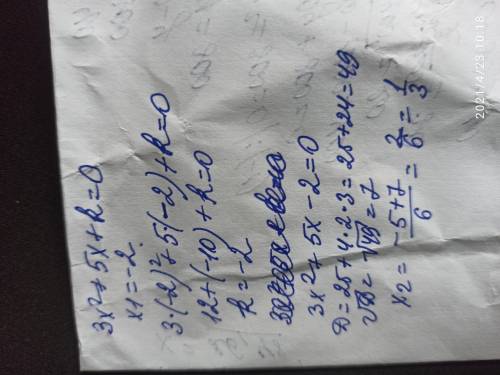 3x²+5x+k=0
x1=-2.
3·(-2)²+5·(-2)+k=0
12+(-10)+k=0
k=-2
3x²+5x-2=0
D=25+4·2·3=25+24=49
√D=√49=7
x2=(-5+7)/6=2/6=1/3
2021/4/23 10:18